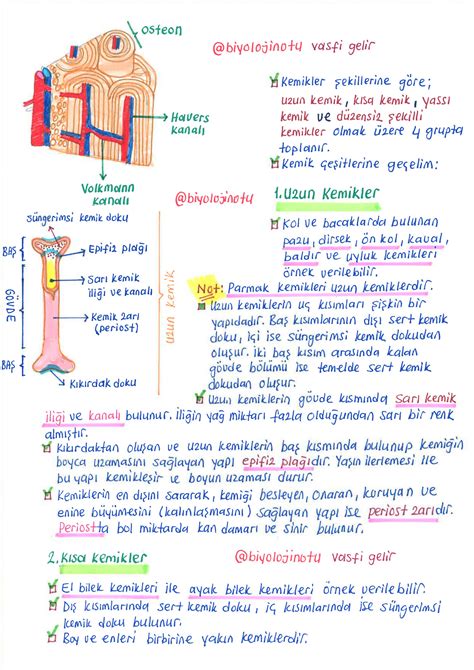 osteon
@biyolojinotu vasfi gelir
Havers
kanalı
Volkmann
kanalı
Kemikler şekillerine göre;
uzun kemik, kısa kemik, yassı
kemik ve düzensiz şekilli
kemikler olmak üzere 4 grupta
toplanır.
Kemik çeşitlerine geçelim:
@biyolojinotu
1. Uzun Kemikler
Kol ve bacaklarda bulunan
pazu, dirsek, ön kol, kaval,
baldır ve uyluk kemikleri
örnek verilebilir.
süngerimsi kemik doku
BAŞ
Epifiz plağı
Sarı kemik
iliği ve kanalı
GÖVDE
Kemik zarı
(periost)
BAŞ
Kıkırdak doku
uzun kemik
Not: Parmak kemikleri uzun kemiklerdir.
Uzun kemiklerin uç kısımları şişkin bir
yapıdadır. Baş kısımlarının dışı sert kemik
doku, içi ise süngerimsi kemik dokudan
oluşur. İki baş kısım arasında kalan
gövde bölümü ise temelde sert kemik
dokudan oluşur.
Uzun kemiklerin gövde kısmında Sarı kemik
iliği ve kanalı bulunur. İliğin yağ miktarı fazla olduğundan sarı bir renk
almıştır.
Kıkırdaktan oluşan ve uzun kemiklerin baş kısmında bulunup kemiğin
boyca uzamasını sağlayan yapı epifiz plağıdır. Yaşın ilerlemesi ile
bu yapı kemikleşir ve boyun uzaması durur.
Kemiklerin en dışını sararak, kemiği besleyen, onaran, koruyan ve
enine büyümesini (kalınlaşmasını) sağlayan yapı ise periost zarıdır.
Periostta bol miktarda kan damarı ve sinir bulunur.
2. Kısa Kemikler
@biyolojinotu vasfi gelir
El bilek kemikleri ile ayak bilek kemikleri örnek verilebilir.
Dış kısımlarında sert kemik doku, iç kısımlarında ise süngerimsi
kemik doku bulunur.
Boy ve enleri birbirine yakın kemiklerdir.